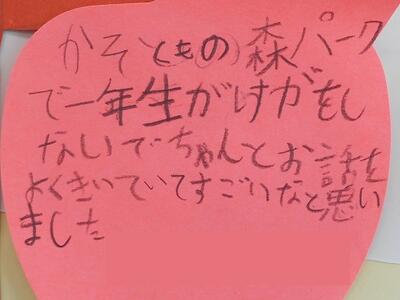 かそ(ともの)森パーク
で一年生がけがをし
ないでちゃんとお話を
よくきいていてすごいなと思い
ました